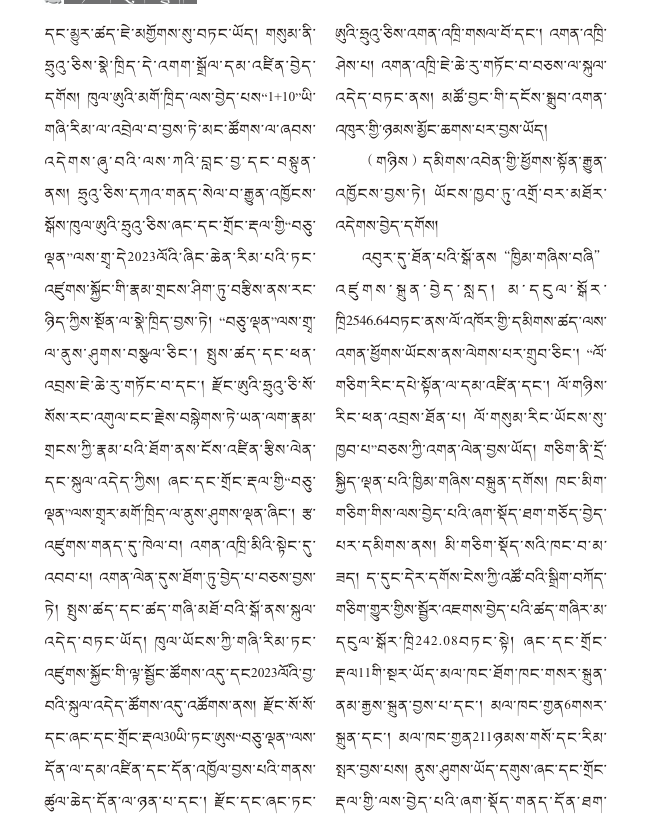 དང་མྱུར་ཚད་ཇེ་མགྱོགས་སུ་བཏང་ཡོད། གསུམ་ནི་
ཧྲུའུ་ཅིས་སྣེ་ཁྲིད་དེ་འགག་སྒྲོལ་དམ་འཛིན་བྱེད་
དགོས། ཁུལ་ཨུའི་མགོ་ཁྲིད་ལས་བྱེད་པས“1+10”ཡི་
གཞི་རིམ་ལ་འབྲེལ་བ་བྱས་ཏེ་མང་ཚོགས་ལ་ཞབས་
འདེགས་ཞུ་བའི་ལས་ཀའི་བླང་བྱ་དང་བསྟུན་
ནས། ཧྲུའུ་ཅིས་དཀའ་གནད་སེལ་བ་རྒྱུན་འཁྱོངས་
སྒོས་ཁུལ་ཨུའི་ཧྲུའུ་ཅིས་ཞང་དང་གྲོང་རྡལ་གྱི“བཅུ་
ལྡན”ལས་གྲྭ་དེ2023ལོའི་ཞིང་ཆེན་རིམ་པའི་ཏང་
འཛུགས་སྐྱོང་གི་རྣམ་གྲངས་ཤིག་ཏུ་བརྩིས་ནས་རང་
ཉིད་ཀྱིས་སྔོན་ལ་སྣེ་ཁྲིད་བྱས་ཏེ། “བཅུ་ལྡན”ལས་གྲྭ་
ལ་ནུས་ཤུགས་བསྩལ་ཅིང་། སྤུས་ཚད་དང་ཕན་
འབྲས་ཇེ་ཆེ་རུ་གཏོང་བ་དང་། རྫོང་ཨུའི་ཧྲུའུ་ཅི་སོ་
སོས་རང་འགུལ་ངང་རྗེས་བསྙེགས་ཏེ་ཡན་ལག་རྣམ་
གྲངས་ཀྱི་རྣམ་པའི་ཐོག་ནས་ངོས་འཛིན་རྩིས་ལེན་
དང་སྐུལ་འདེད་ཀྱིས། ཞང་དང་གྲོང་རྡལ་གྱི“བཅུ་
ལྡན”ལས་གྲྭར་མགོ་ཁྲིད་ལ་ནུས་ཤུགས་ལྡན་ཞིང་། རྩ་
འཛུགས་གནད་དུ་ཁེལ་བ། འགན་འཁྲི་མིའི་སྟེང་དུ་
འབབ་པ། འགན་ལེན་དུས་ཐོག་ཏུ་བྱེད་པ་བཅས་བྱས་
ཏེ། སྤུས་ཚད་དང་ཚད་གཞི་མཐོ་བའི་སྒོ་ནས་སྐུལ་
འདེད་བཏང་ཡོད། ཁུལ་ཡོངས་ཀྱི་གཞི་རིམ་ཏང་
འཛུགས་སྐྱོང་གི་ལྟ་སྦྱོང་ཚོགས་འདུ་དང2023ལོའི་བྱ་
བའི་སྐུལ་འདེད་ཚོགས་འདུ་འཚོགས་ནས། རྫོང་སོ་སོ་
དང་ཞང་དང་གྲོང་རྡལ30ཡི་ཏང་ཨུས“བཅུ་ལྡན”ལས་
དོན་ལ་དམ་འཛིན་དང་དོན་འཁྱོལ་བྱས་པའི་གནས་
ཚུལ་ཆེད་དོན་ལ་ཉན་པ་དང་། རྫོང་དང་ཞང་ཏང་
ཨུའི་ཧྲུའུ་ཅིས་འགན་འཁྲི་གསལ་པོ་དང་། འགན་འཁྲི་
ཤེས་པ། འགན་འཁྲི་ཇེ་ཆེ་རུ་གཏོང་བ་བཅས་ལ་སྐུལ་
འདེད་བཏང་ནས། མཚོ་བྱང་གི་དངོས་སྒྲུབ་འགན་
འཁུར་གྱི་ཉམས་མྱོང་ཆགས་པར་བྱས་ཡོད།
（གཉིས）དམིགས་འབེན་གྱི་ཕྱོགས་སྟོན་རྒྱུན་
འཁྱོངས་བྱས་ཏེ། ཡོངས་ཁྱབ་ཏུ་འགྲོ་བར་མཐོར་
འདེགས་བྱེད་དགོས།
འབུར་དུ་ཐོན་པའི་སྒོ་ནས “ཁྱིམ་གཞིས་བཞི”
འཛུགས་སྐྲུན་བྱེད་སླད། མ་དངུལ་སྒོར་
ཁྲི2546.64བཏང་ནས་ལོ་འཁོར་གྱི་དམིགས་ཚད་ལས་
འགན་ཕྱོགས་ཡོངས་ནས་ལེགས་པར་གྲུབ་ཅིང་། “ལོ་
གཅིག་རིང་དཔེ་སྟོན་ལ་དམ་འཛིན་དང་། ལོ་གཉིས་
རིང་ཕན་འབྲས་ཐོན་པ། ལོ་གསུམ་རིང་ཡོངས་སུ་
ཁྱབ་པ”བཅས་ཀྱི་འགན་ལེན་བྱས་ཡོད། གཅིག་ནི་དྲོ་
སྐྱིད་ལྡན་པའི་ཁྱིམ་གཞིས་བསྐྲུན་དགོས། ཁང་མིག་
གཅིག་གིས་ལས་བྱེད་པའི་ཞག་སྡོད་ཐག་གཅོད་བྱེད་
པར་དམིགས་ནས། མི་གཅིག་སྡོད་སའི་ཁང་བ་མ་
ཟད། ད་དུང་དེར་དགོས་ངེས་ཀྱི་འཚོ་བའི་སྒྲིག་བཀོད་
གཅིག་གྱུར་གྱིས་སྦྱོར་འཇགས་བྱེད་པའི་ཚད་གཞིར་མ་
དངུལ་སྒོར་ཁྲི242.08བཏང་སྟེ། ཞང་དང་གྲོང་
རྡལ11གི་སྔར་ཡོད་མལ་ཁང་ཐོག་ཁང་གསར་སྐྲུན་
ནམ་རྒྱས་སྐྲུན་བྱས་པ་དང་། མལ་ཁང་གྱན6གསར་
སྐྲུན་དང་། མལ་ཁང་གྱན211ཉམས་གསོ་དང་རིམ་
སྤར་བྱས་པས། ནུས་ཤུགས་ཡོད་དགུས་ཞང་དང་གྲོང་
རྡལ་གྱི་ལས་བྱེད་པའི་ཞག་སྡོད་གནད་དོན་ཐག་